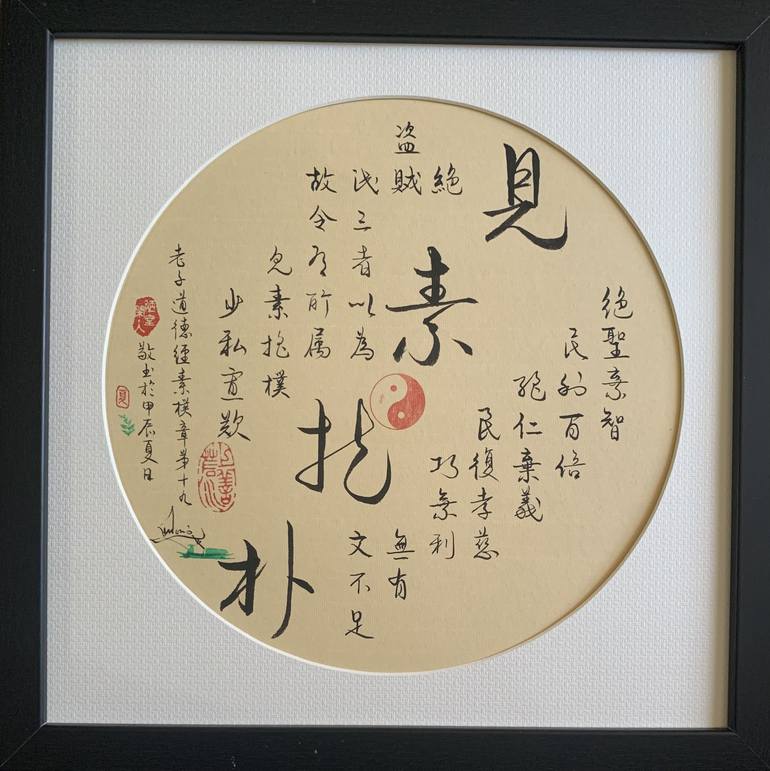 見素抱朴
絕聖棄智
民利百倍
絕仁棄義
民復孝慈
絕巧棄利
盗賊無有
此三者以為文不足
故令有所属
見素抱樸
少私寡欲
老子道德經素樸章第十九
敬书於甲辰夏日
上善若水
夏